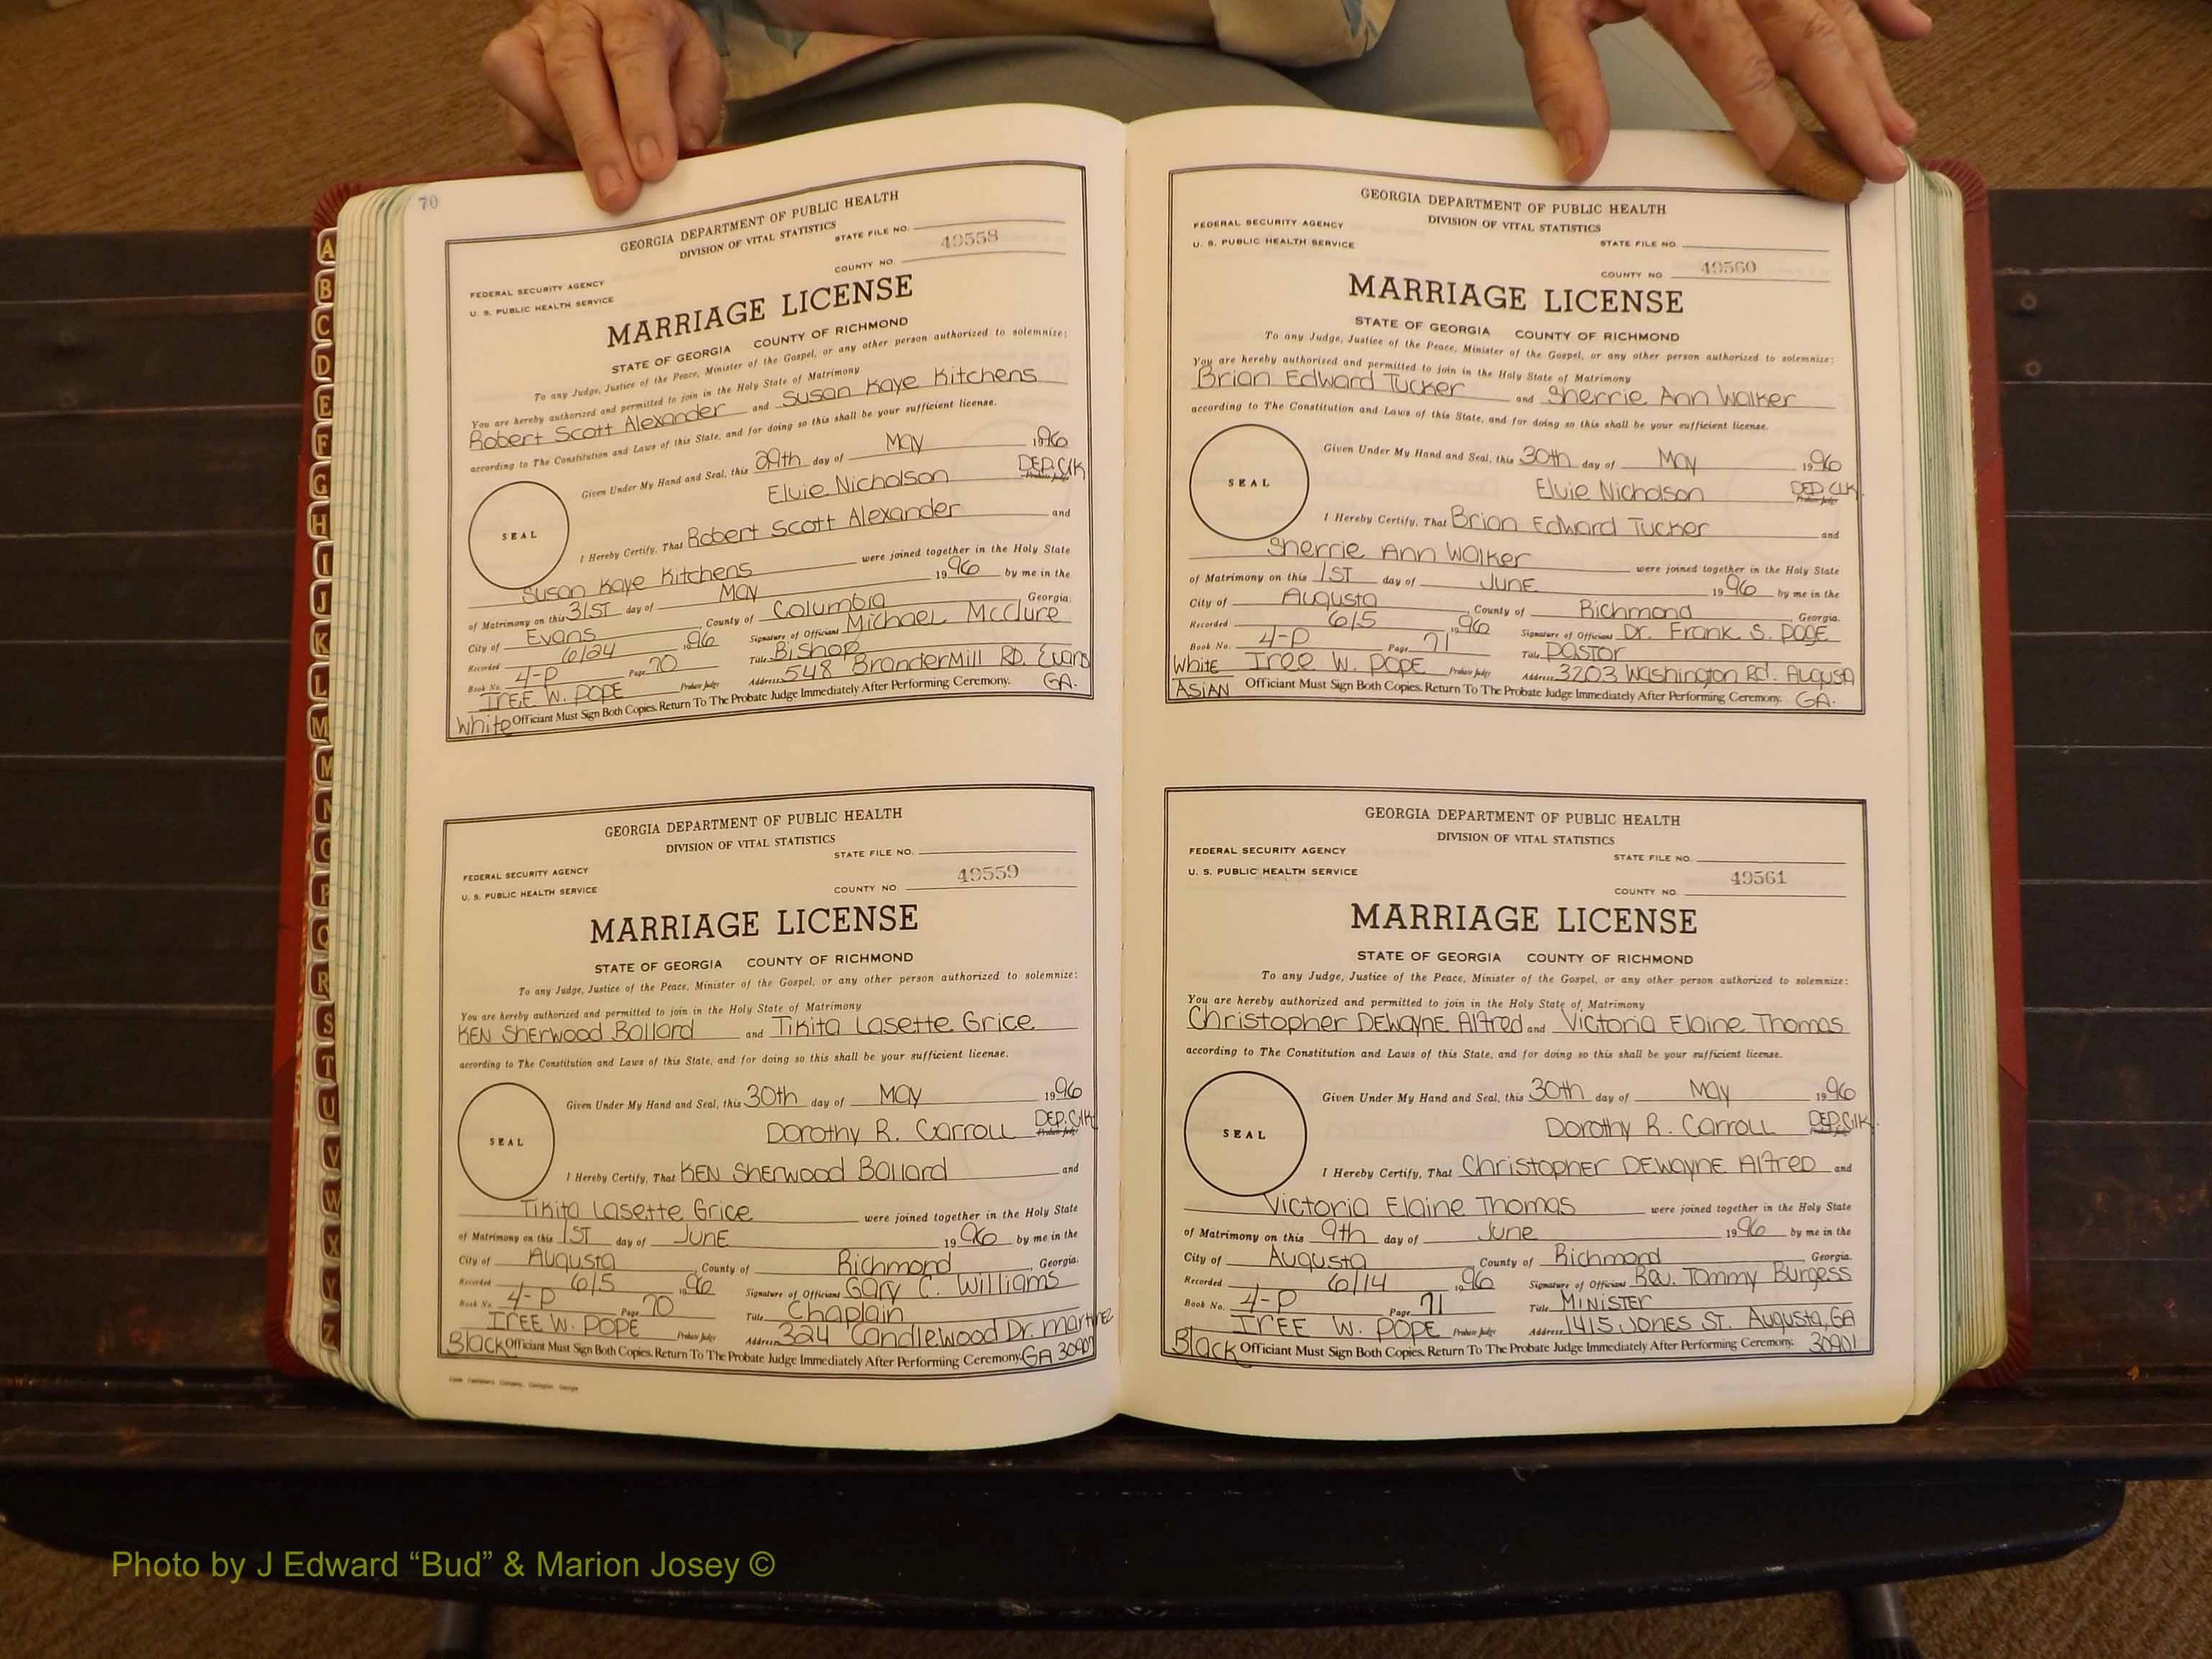 70
GEORGIA DEPARTMENT OF PUBLIC HEALTH
DIVISION OF VITAL STATISTICS
STATE FILE NO.
49558
COUNTY NO
FEDERAL SECURITY AGENCY
U. S. PUBLIC HEALTH SERVICE
MARRIAGE LICENSE
STATE OF GEORGIA COUNTY OF RICHMOND
To any Judge, Justice of the Peace, Minister of the Gospel, or any other person authorized to solemnize:
You are hereby authorized and permitted to join in the Holy State of Matrimony
Robert Scott Alexander and Susan Kaye Kitchens
according to The Constitution and Laws of this State, and for doing so this shall be your sufficient license.
Given Under My Hand and Seal, this 29th day of May 1996
Elvie Nicholson DEP. Clk
Probate Judge
SEAL
I Hereby Certify, That Robert Scott Alexander and
Susan Kaye Kitchens were joined together in the Holy State
of Matrimony on this 31ST day of May 1996 by me in the
City of Evans, County of Columbia, Georgia.
Recorded 6/24 1996 Signature of Officiant Michael McClure
Book No. 4-P Page 70 Title Bishop
TREE W. POPE Probate Judge Address 548 BranderMill RD. Evans
GA.
White Officiant Must Sign Both Copies. Return To The Probate Judge Immediately After Performing Ceremony.
GEORGIA DEPARTMENT OF PUBLIC HEALTH
DIVISION OF VITAL STATISTICS
STATE FILE NO.
49559
COUNTY NO
FEDERAL SECURITY AGENCY
U. S. PUBLIC HEALTH SERVICE
MARRIAGE LICENSE
STATE OF GEORGIA COUNTY OF RICHMOND
To any Judge, Justice of the Peace, Minister of the Gospel, or any other person authorized to solemnize:
You are hereby authorized and permitted to join in the Holy State of Matrimony
KEN Sherwood Ballard and Tikita Lasette Grice
according to The Constitution and Laws of this State, and for doing so this shall be your sufficient license.
Given Under My Hand and Seal, this 30th day of MAY 1996
Dorothy R. Carroll DEP. Clk
Probate Judge
SEAL
I Hereby Certify, That KEN Sherwood Ballard and
Tikita Lasette Grice were joined together in the Holy State
of Matrimony on this 1ST day of JUNE 1996 by me in the
City of Augusta, County of Richmond, Georgia.
Recorded 6/5 1996 Signature of Officiant Gary C. Williams
Book No. 4-P Page 70 Title Chaplain
TREE W. POPE Probate Judge Address 324 Candlewood Dr. Martinez
Black Officiant Must Sign Both Copies. Return To The Probate Judge Immediately After Performing Ceremony. GA 30907
GEORGIA DEPARTMENT OF PUBLIC HEALTH
DIVISION OF VITAL STATISTICS
FEDERAL SECURITY AGENCY
U. S. PUBLIC HEALTH SERVICE
STATE FILE NO.
COUNTY NO 49560
MARRIAGE LICENSE
STATE OF GEORGIA COUNTY OF RICHMOND
To any Judge, Justice of the Peace, Minister of the Gospel, or any other person authorized to solemnize:
You are hereby authorized and permitted to join in the Holy State of Matrimony
Brian Edward Tucker and Sherrie Ann Walker
according to The Constitution and Laws of this State, and for doing so this shall be your sufficient license.
Given Under My Hand and Seal, this 30th day of May 1996
Elvie Nicholson DEP. Clk.
Probate Judge
SEAL
I Hereby Certify, That Brian Edward Tucker and
Sherrie Ann Walker were joined together in the Holy State
of Matrimony on this 1ST day of JUNE 1996 by me in the
City of Augusta, County of Richmond Georgia.
Recorded 6/5 1996 Signature of Officiant Dr. Frank S. PAGE
Book No. 4-P Page 71 Title PASTOR
White TREE W. POPE Probate Judge Address 3203 Washington Rd. Augusta
ASIAN Officiant Must Sign Both Copies. Return To The Probate Judge Immediately After Performing Ceremony. GA.
GEORGIA DEPARTMENT OF PUBLIC HEALTH
DIVISION OF VITAL STATISTICS
FEDERAL SECURITY AGENCY
U. S. PUBLIC HEALTH SERVICE
STATE FILE NO.
49561
COUNTY NO.
MARRIAGE LICENSE
STATE OF GEORGIA COUNTY OF RICHMOND
To any Judge, Justice of the Peace, Minister of the Gospel, or any other person authorized to solemnize:
You are hereby authorized and permitted to join in the Holy State of Matrimony
Christopher DEWAYNE Alfred and Victoria Elaine Thomas
according to The Constitution and Laws of this State, and for doing so this shall be your sufficient license.
Given Under My Hand and Seal, this 30th day of MAY 1996
Dorothy R. Carroll DEP. Clk.
Probate Judge
SEAL
I Hereby Certify, That Christopher DEWAYNE Alfred and
Victoria Elaine Thomas were joined together in the Holy State
of Matrimony on this 9th day of June 1996 by me in the
City of Augusta, County of Richmond, Georgia.
Recorded 6/14 1996 Signature of Officiant Rev. Tommy Burgess
Book No. 4-P Page 71 Title MINISTER
TREE W. POPE Probate Judge Address 1415 JONES ST. Augusta, GA
Black Officiant Must Sign Both Copies. Return To The Probate Judge Immediately After Performing Ceremony. 30901
A
B
C
D
E
F
G
H
I
J
K
L
M
M
N
O
P
Q
R
S
T
U
V
W
X
Y
Z
Photo by J Edward “Bud” & Marion Josey ©